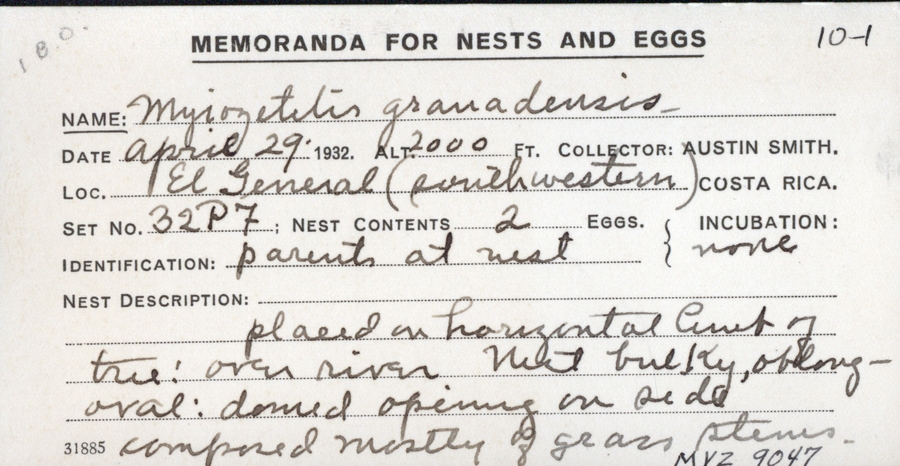 I.B.O.
MEMORANDA FOR NESTS AND EGGS 10-1
NAME: Myiozetetis granadensis
DATE april 29. 1932. ALT. 2000 FT. COLLECTOR: AUSTIN SMITH.
LOC. El General (southwestern) COSTA RICA.
SET NO. 32P7; NEST CONTENTS 2 EGGS. { INCUBATION:
IDENTIFICATION: parents at nest none
NEST DESCRIPTION:
placed on horizontal limb of
tree: over river Nest bulky, oblong-
oval: domed opening on side
31885 composed mostly of grass stems.
MVZ 9047